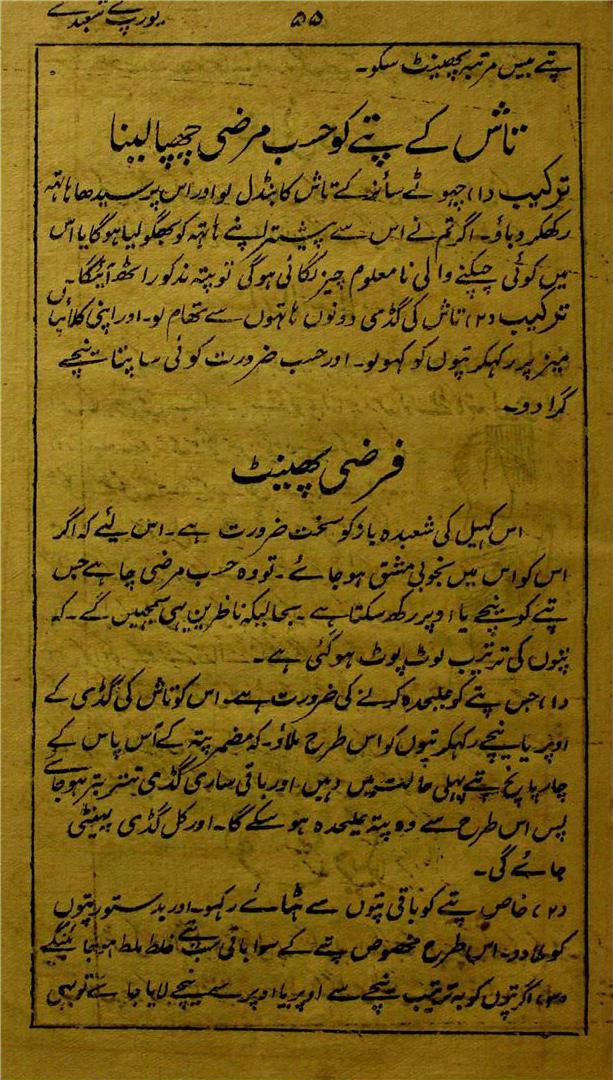 ۵۵
یورپ کے شعبدے
پتے بیس مرتبہ پھینٹ سکو۔
تاش کے پتے کو حسب مرضی چھپا لینا
ترکیب (۱) چھوٹے سائز کے تاش کا بنڈل لو اور اس پر سیدھا ہاتھ
رکھکر دباؤ۔ اگر تم نے اس سے پیشتر اپنے ہاتھ کو بھگو لیا ہوگا یا اس
میں کوئی چپکنے والی نامعلوم چیز لگائی ہوگی تو پتہ مذکور اٹھ آئیگا۔
ترکیب (۲) تاش کی گڈی دونوں ہاتھوں سے تھام لو۔ اور اپنی کلائیاں
میز پر رکھکر پتوں کو کھولو۔ اور حسب ضرورت کوئی سا پتا نیچے
گرا دو۔
فرضی پھینٹ
اس کھیل کی شعبدہ باز کو سخت ضرورت ہے۔ اس لیئے کہ اگر
اس کو اس میں بخوبی مشق ہو جائے۔ تو وہ حسب مرضی چاہے جس
پتے کو نیچے یا اوپر رکھ سکتا ہے۔ بحالیکہ ناظرین یہی سمجھیں گے۔ کہ
پتوں کی ترتیب لوٹ پوٹ ہو گئی ہے۔
(۱) جس پتے کو علیحدہ کرنے کی ضرورت ہے۔ اس کو تاش کی گڈی کے
اوپر یا نیچے رکھکر پتوں کو اس طرح ملاؤ۔ کہ مضمر پتہ کے آس پاس کے
چار پانچ پتے پہلی حالت میں رہیں۔ اور باقی ساری گڈی تتر بتر ہو جائے
پس اس طرح سے وہ پتہ علیحدہ ہو سکے گا۔ اور کل گڈی پھینٹی
جائے گی۔
(۲) خاص پتے کو باقی پتوں سے ہٹائے رکھو۔ اور بدستور پتوں
کو ملا دو۔ اس طرح مخصوص پتے کے سوا باقی سب پتے غلط ملط ہو جائینگے
(۳) اگر پتوں کو بہ ترتیب نیچے سے اوپر یا اوپر سے نیچے لایا جائے تو بھی